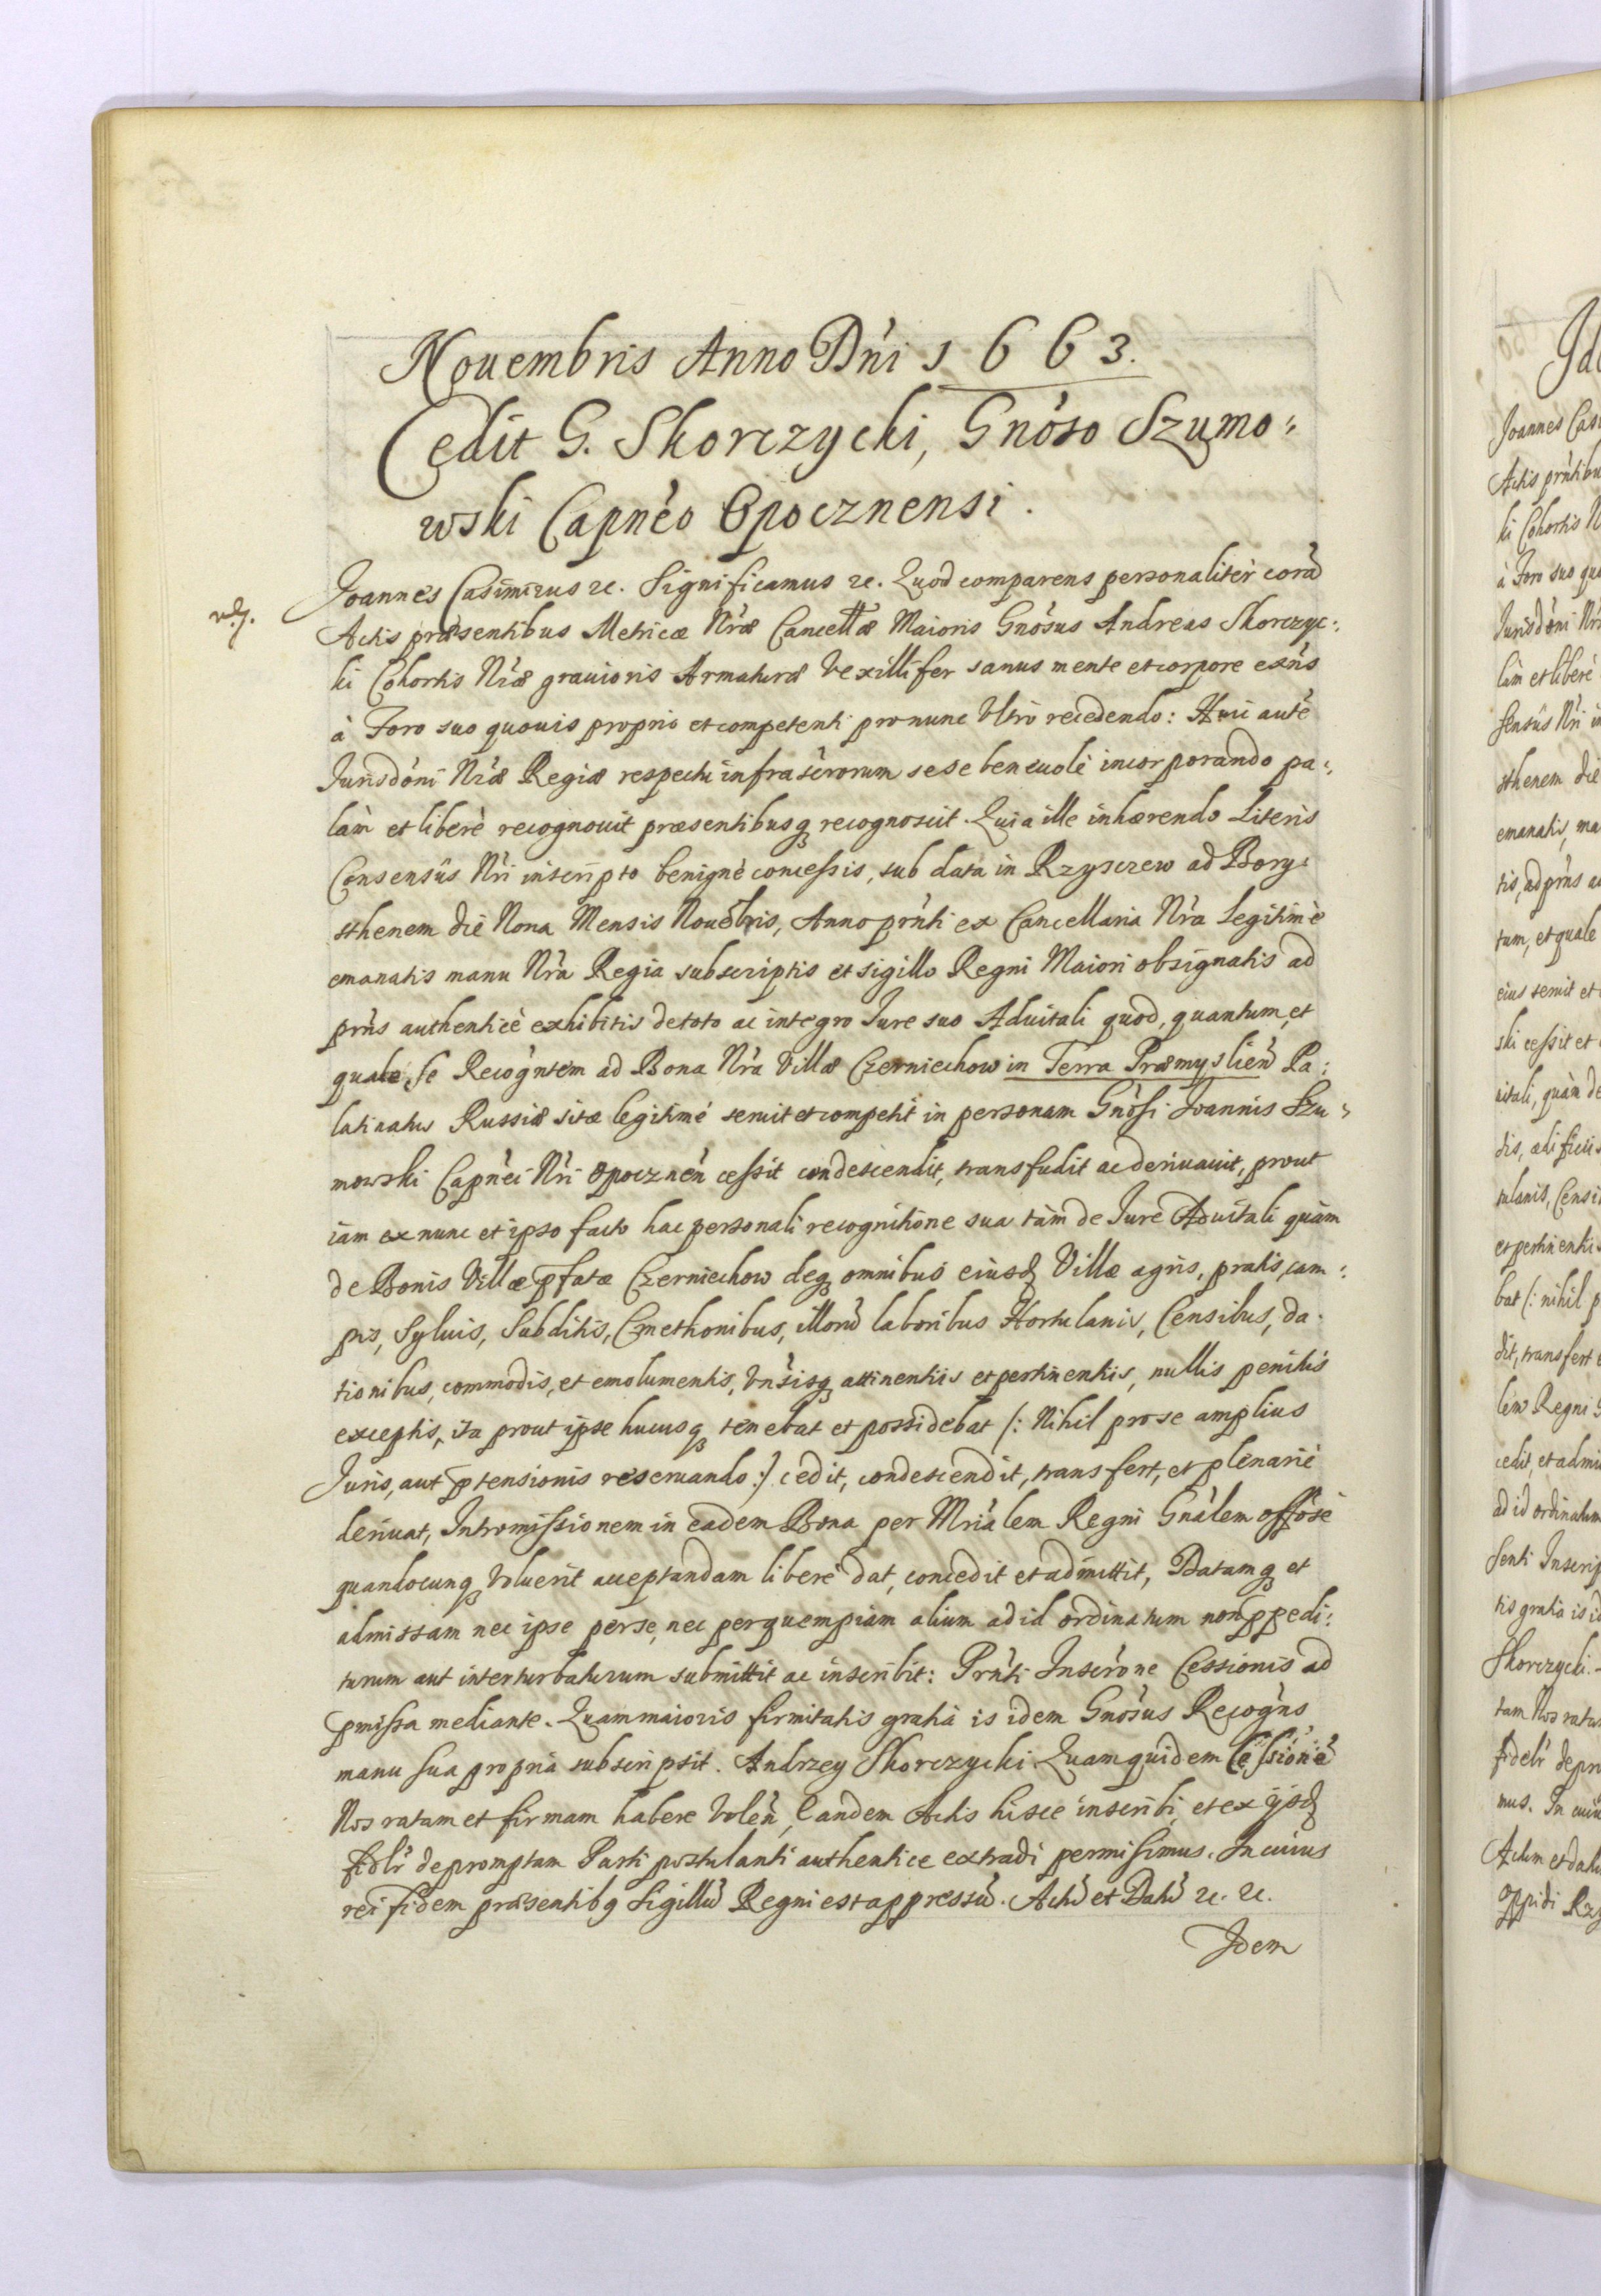 Nouembris Anno Dńi 1663.
Cedit G. Skorczycki, Gnóso Szumo:
wski Capnéo Opocznensi.
Joannes Casimirus ꝛc. Significamus ꝛc. Quod comparens personalitèr corã
Actis præsentibus Metricæ Nŕæ Cancellæ Maioris Gnósus Andreas Skorczyc:
ki Cohortis Nŕæ grauioris Armaturæ Vexillifer sanus mente et corpore exńs
à Foro suo quouis proprio et competenti pro nunc Vltrò recedendo: Huic autẽ
Jurisdóni Nŕæ Regiæ respectu infrascŕorum sese beneuolè incorporando pa:
làm et liberè recognouit præsentibusq recognoscit. Quia ille inhærendo Literis
Consensûs Nŕi inscripto benignè concessis, sub data in Rzysczew ad Bory:
sthenem die Nona Mensis Nouẽbris, Anno prńti ex Cancellaria Nŕa Legitimè
emanatis manu Nŕa Regia subscriptis et sigillo Regni Maiori obsignatis ad
prńs authenticè exhibitis de toto ac integro Jure suo Aduitali quod, quantum, et
quale, se Recogńtem ad Bona Nŕa Villæ Czerniechow in Terra Præmyslień Pa:
latinatus Russiæ sitæ legitimé seruit et competit in personam Gnósi Joannis Szu:
mowski Capnéi Nŕi Opoczneń cessit condescendit, transfudit ac deriuauit, prout
iam ex nunc et ipso facto hac personali recognitione sua tàm de Jure Aduitali quàm
de Bonis Villæ pfatæ Czerniechow deq omnibus eiusd Villæ agris, pratis, cam:
pis, Syluis, Subditis, Cmethonibus, illorũ laboribus Hortulanis, Censibus, da:
tionibus, commodis, et emolumentis, Vnśisq attinentiis et pertinentiis, nullis penitùs
exceptis, ita prout ipse hucusq tenebat et possidebat /: Nihil pro se amplius
Juris, aut ptensionis reseruando :/ cedit, condescendit, transfert, et plenariè
deriuat, Intromissionem in eadem Bona per Mriálem Regni Gnálem offóse
quandocunq Voluerit acceptandam liberè dat, concedit et admittit, Datamq et
admissam nec ipse per se, nec per quempiam alium ad id ordinatum non ppedi:
turum aut interturbaturum submittit ac inscribit: Prńti Inscŕone Cessionis ad
pmissa mediante. Quam maioris firmitatis gratiâ is idem Gnósus Recogńs
manu sua propriâ subscripsit. Andrzey Skorczycki. Quam quidem Cessionẽ
Nos ratam et firmam habere Voleń, Eandem Actis hisce inscribi, et ex ijsd
fidlŕ depromptam Parti postulanti authenticè extradi permisimus. In cuius
rei fidem præsentibq Sigillũ Regni est appressũ. Actũ et Datũ ꝛc. ꝛc.
Idem